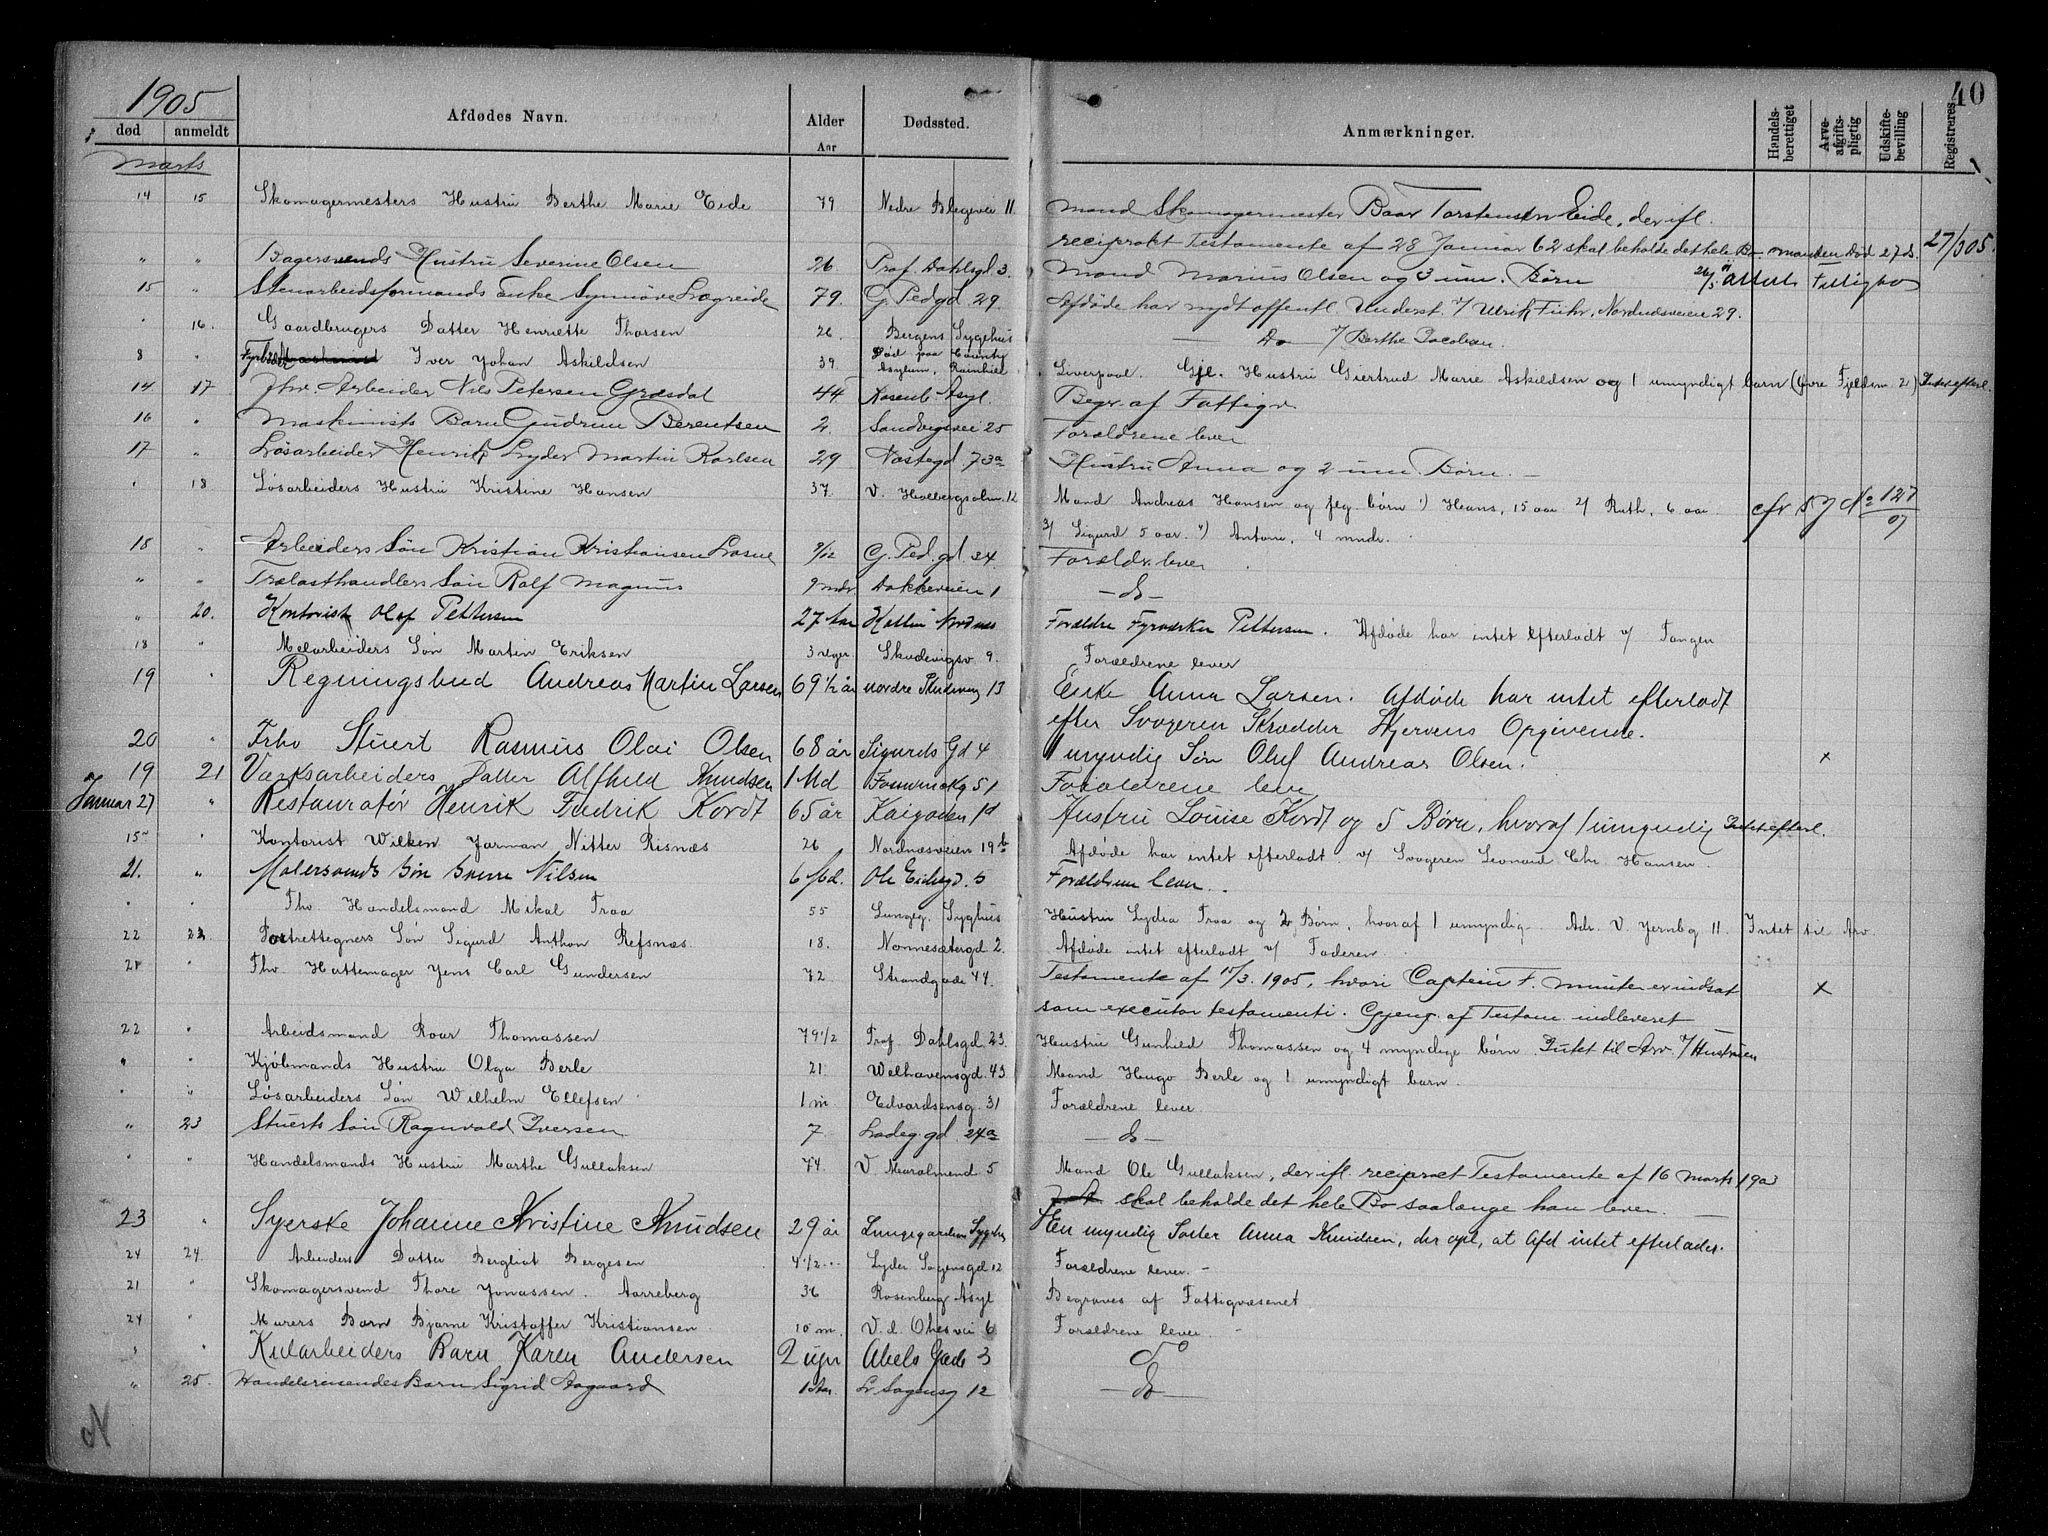 40
1905
død anmeldt Afdødes Navn. Alder Aar Dødssted. Anmærkninger. Handels-berettiget Arve-afgifts-pligtig Udskifte-bevilling Registreres
Marts
14 15 Skomagermesters Hustru Berthe Marie Eide 79 Nedre Blegevei 11 Mand Skomagermester Baar Torstensen Eide, der ifl.
reciprokt Testamente af 28 Januar 62 skal beholde det hele Bo manden død 27 ds. 27/3 05.
" " Bagersvends Hustru Severine Olsen 26 Prof. Dahlsgd 3. Mand Marius Olsen og 3 um. Børn
15 " Stenarbeidsformands Enke Synnøve Lægreide 79. G. Ped gd 29. Afdøde har nydt offentl. Underst. v/ Ulrik Fuhr, Nordnæsveien 29.
" 16. Gaardbrugers Datter Henriette Thorsen 26 Bergens Sygehus — Do — v/ Berthe Jacobsen.
8 " Iver Johan Askildsen 39 Død paa County Asylum, Rainhill Liverpool. Gjl. Hustru Giertrud Marie Askildsen og 1 umyndigt barn (Øvre Fjeldsm 2) Intet efterl.
14 17 Fhv. Arbeider Nils Petersen Græsdal 44 Rosenb. Asyl. Begr. af Fattigv.
16 " Maskinists Barn Gudrun Berentsen 2. Sandvigsvei 25 Forældrene lever
17 " Løsarbeider Henrik Lyder Martin Karlsen 29 Nøstegd 73a Hustru Anna og 2 um. Børn. —
" 18 Løsarbeiders Hustru Kristine Hansen 37. V. Holbergsalm. 12 Mand Andreas Hansen og flg. børn 1) Hans, 15 aar 2/ Ruth, 6 aar cfr No 127/07
3/ Sigurd 5 aar. 4) Antoni, 4 mndr.
18 " Arbeiders Søn Kristian Kristiansen 9/12 G. Ped. gd 24. Forældr. lever
" " Trælasthandlers Søn Rolf Magnus 9 mdr Dokkeveien 1 — do —
" 20. Kontorist Olaf Pettersen 27 Aar Nordnæs Forældre Fyrværker Pettersen. Afdøde har intet efterladt v/ Tangen
18 " Søn Martin Eriksen 3 uger. Skudevigsv 9. Forældrene lever
19 " Regningsbud Andreas Martin Larsen 69 1/2 år nordre Skudevig 13 Enke Anna Larsen. Afdøde har intet efterladt
efter Svogeren Skrædder Hjervens Opgivende.
20 " Fhv Stuert Rasmus Olai Olsen 68 år Sigurds Gd 4 1 myndig Søn Oluf Andreas Olsen. x
19 21 Værksarbeiders Datter Alfhild Knudsen 1 Md 51 Forældrene lever
Januar 27 " Restauratør Henrik Fredrik Kordt 65 år Kaigaden 1d Hustru Louise Kordt og 5 Børn, hvoraf 1 umyndig Intet efterl.
15 " Kontorist Wilken Jarman Nitter Risnæs 26 Nordnæsveien 19b Afdøde har intet efterladt v/ Svogeren Leonard Chr. Hansen.
21. " Malersvends Søn Nilsen 6 Md. Ole 5 Forældrene lever.
" " Fhv. Handelsmand Mikal Traa 55 Lungeg. Syghus Hustru Lydia Traa og 2 Børn, hvoraf 1 umyndig. Adr. V. Jernbg 11. Intet til Arv.
22 22 Portrettegners Søn Sigurd Anthon Refsnæs. 18. Nonnesætergd 2. Afdøde intet efterladt v/ Faderen.
21 " Fhv. Hattemager Jens Carl Gundersen 72 Strandgade 44. Testamente af 15/3. 1905, hvori Captein F. Munster er indsat x
som executor testamenti. Gjeng. af Testam. indleveret
22 " Arbeidsmand Roar Thomassen 79 1/2 Prof. Dahlsgd. 23. Hustru Gunhild Thomassen og 4 myndige børn. Intet til Arv v/ Hustruen
" " Kjøbmands Hustru Olga Berle 21 Welhavensgd. 43 Mand Hugo Berle og 1 umyndigt barn.
" " Løsarbeiders Søn Wilhelm Ellefsen 1 m Edvardsensg. 31 Forældrene lever.
" 23 Stuerts Søn Ragnvald Iversen 7. Ladeg. gd. 24a — do —
" " Handelsmands Hustru Marthe Gullaksen 74 V. Muralmend. 5 Mand Ole Gullaksen, der ifl. reciprokt Testamente af 16 Marts 1903
skal beholde det hele Bo saalænge han lever. —
23 " Syerske Johanne Kristine Knudsen 29 år Lungegardens Sygehus En myndig Søster Anna Knudsen, der opl, at Afd intet efterlader.
24 24. Arbeiders Datter Bergliot Bergesen 4 1/2 Lyder Sagensgd 12 Forældrene lever. —
21 " Skomagersvend Thore Jonassen Aarreberg 36 Rosenberg Asyl Begraves af Fattigvæsenet
24 " Murers Barn Bjarne Kristoffer Kristiansen 10 m. V. d. Ohesvei 6 Forældrene lever. —
" " Kularbeiders Barn Karen Andersen 2 uger Abels Gade 3 do
" 25. Handelsreisendes Barn Sigrid Aagaard 1 Aar. L. Sagensg 12 — do —
N